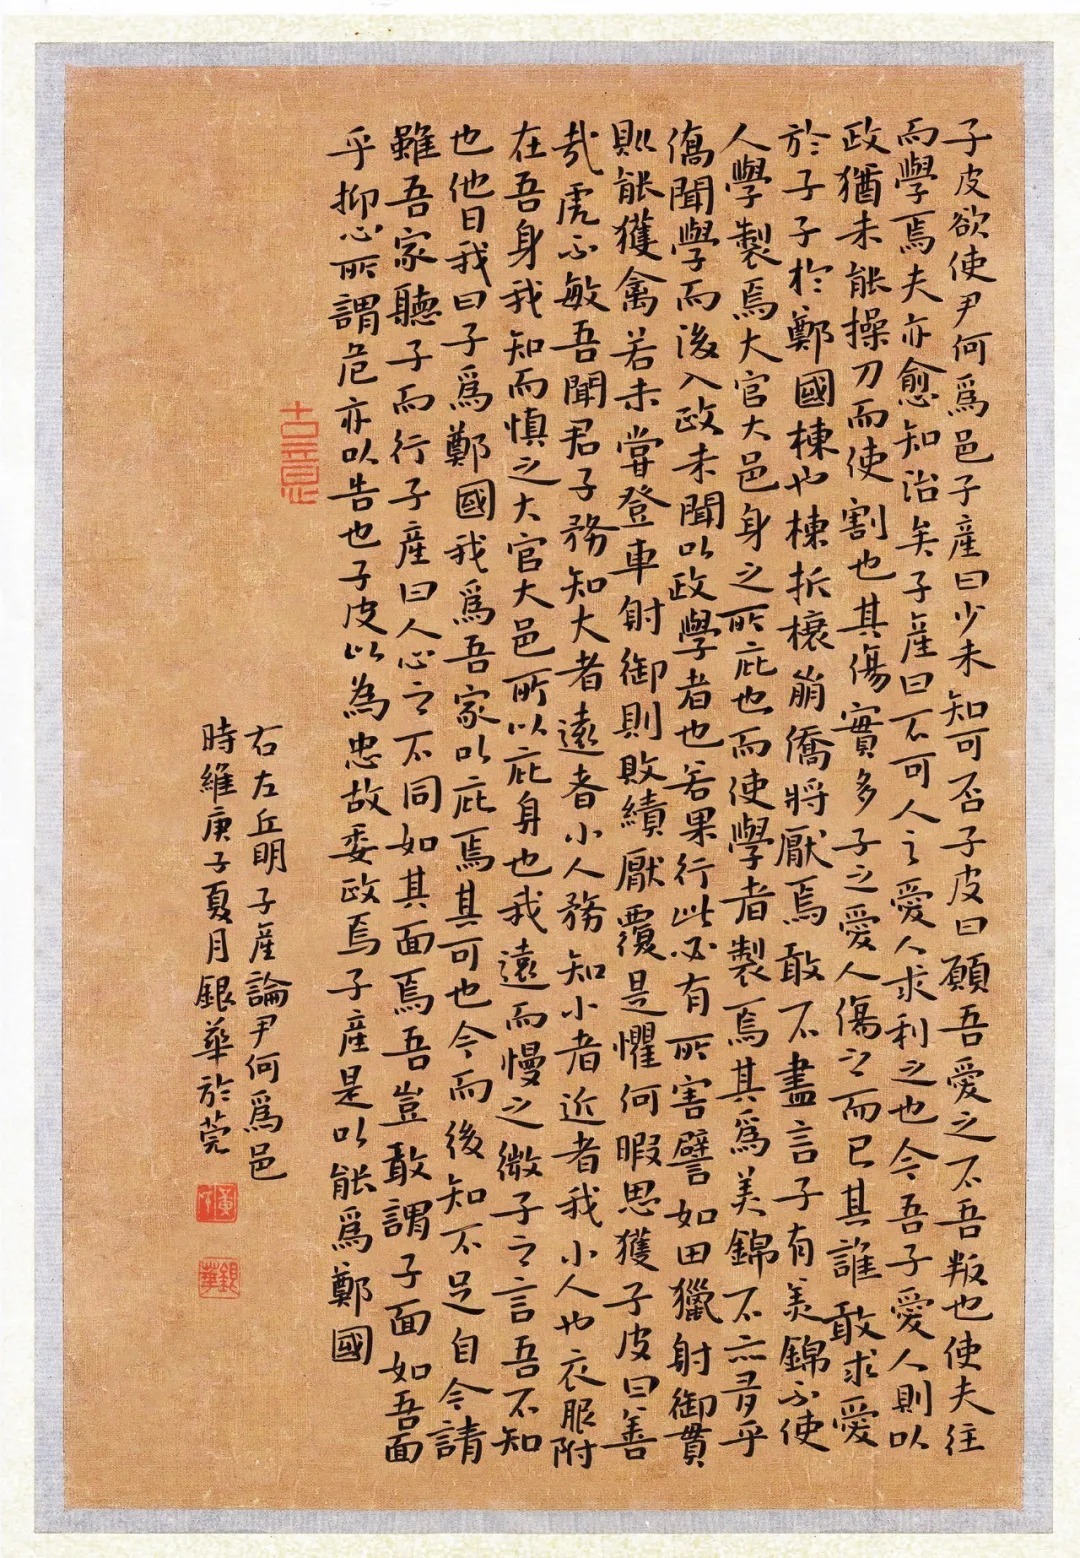 子皮欲使尹何爲邑子產曰少未知可否子皮曰願吾愛之不吾叛也使夫往
而學焉夫亦愈知治矣子產曰不可人之愛人求利之也今吾子愛人則以
政猶未能操刀而使割也其傷實多子之愛人傷之而已其誰敢求愛
於子子於鄭國棟也棟折榱崩僑將厭焉敢不盡言子有美錦不使
人學製焉大官大邑身之所庇也而使學者製焉其爲美錦不亦多乎
僑聞學而後入政未聞以政學者也若果行此必有所害譬如田獵射御貫
則能獲禽若未嘗登車射御則敗績厭覆是懼何暇思獲子皮曰善
哉虎不敏吾聞君子務知大者遠者小人務知小者近者我小人也衣服附
在吾身我知而慎之大官大邑所以庇身也我遠而慢之微子之言吾不知
也他日我曰子爲鄭國我爲吾家以庇焉其可也今而後知不足自今請
雖吾家聽子而行子產曰人心之不同如其面焉吾豈敢謂子面如吾面
乎抑心所謂危亦以告也子皮以為忠故委政焉子產是以能爲鄭國
右左丘明子產論尹何爲邑
時維庚子夏月銀華於莞
銀華